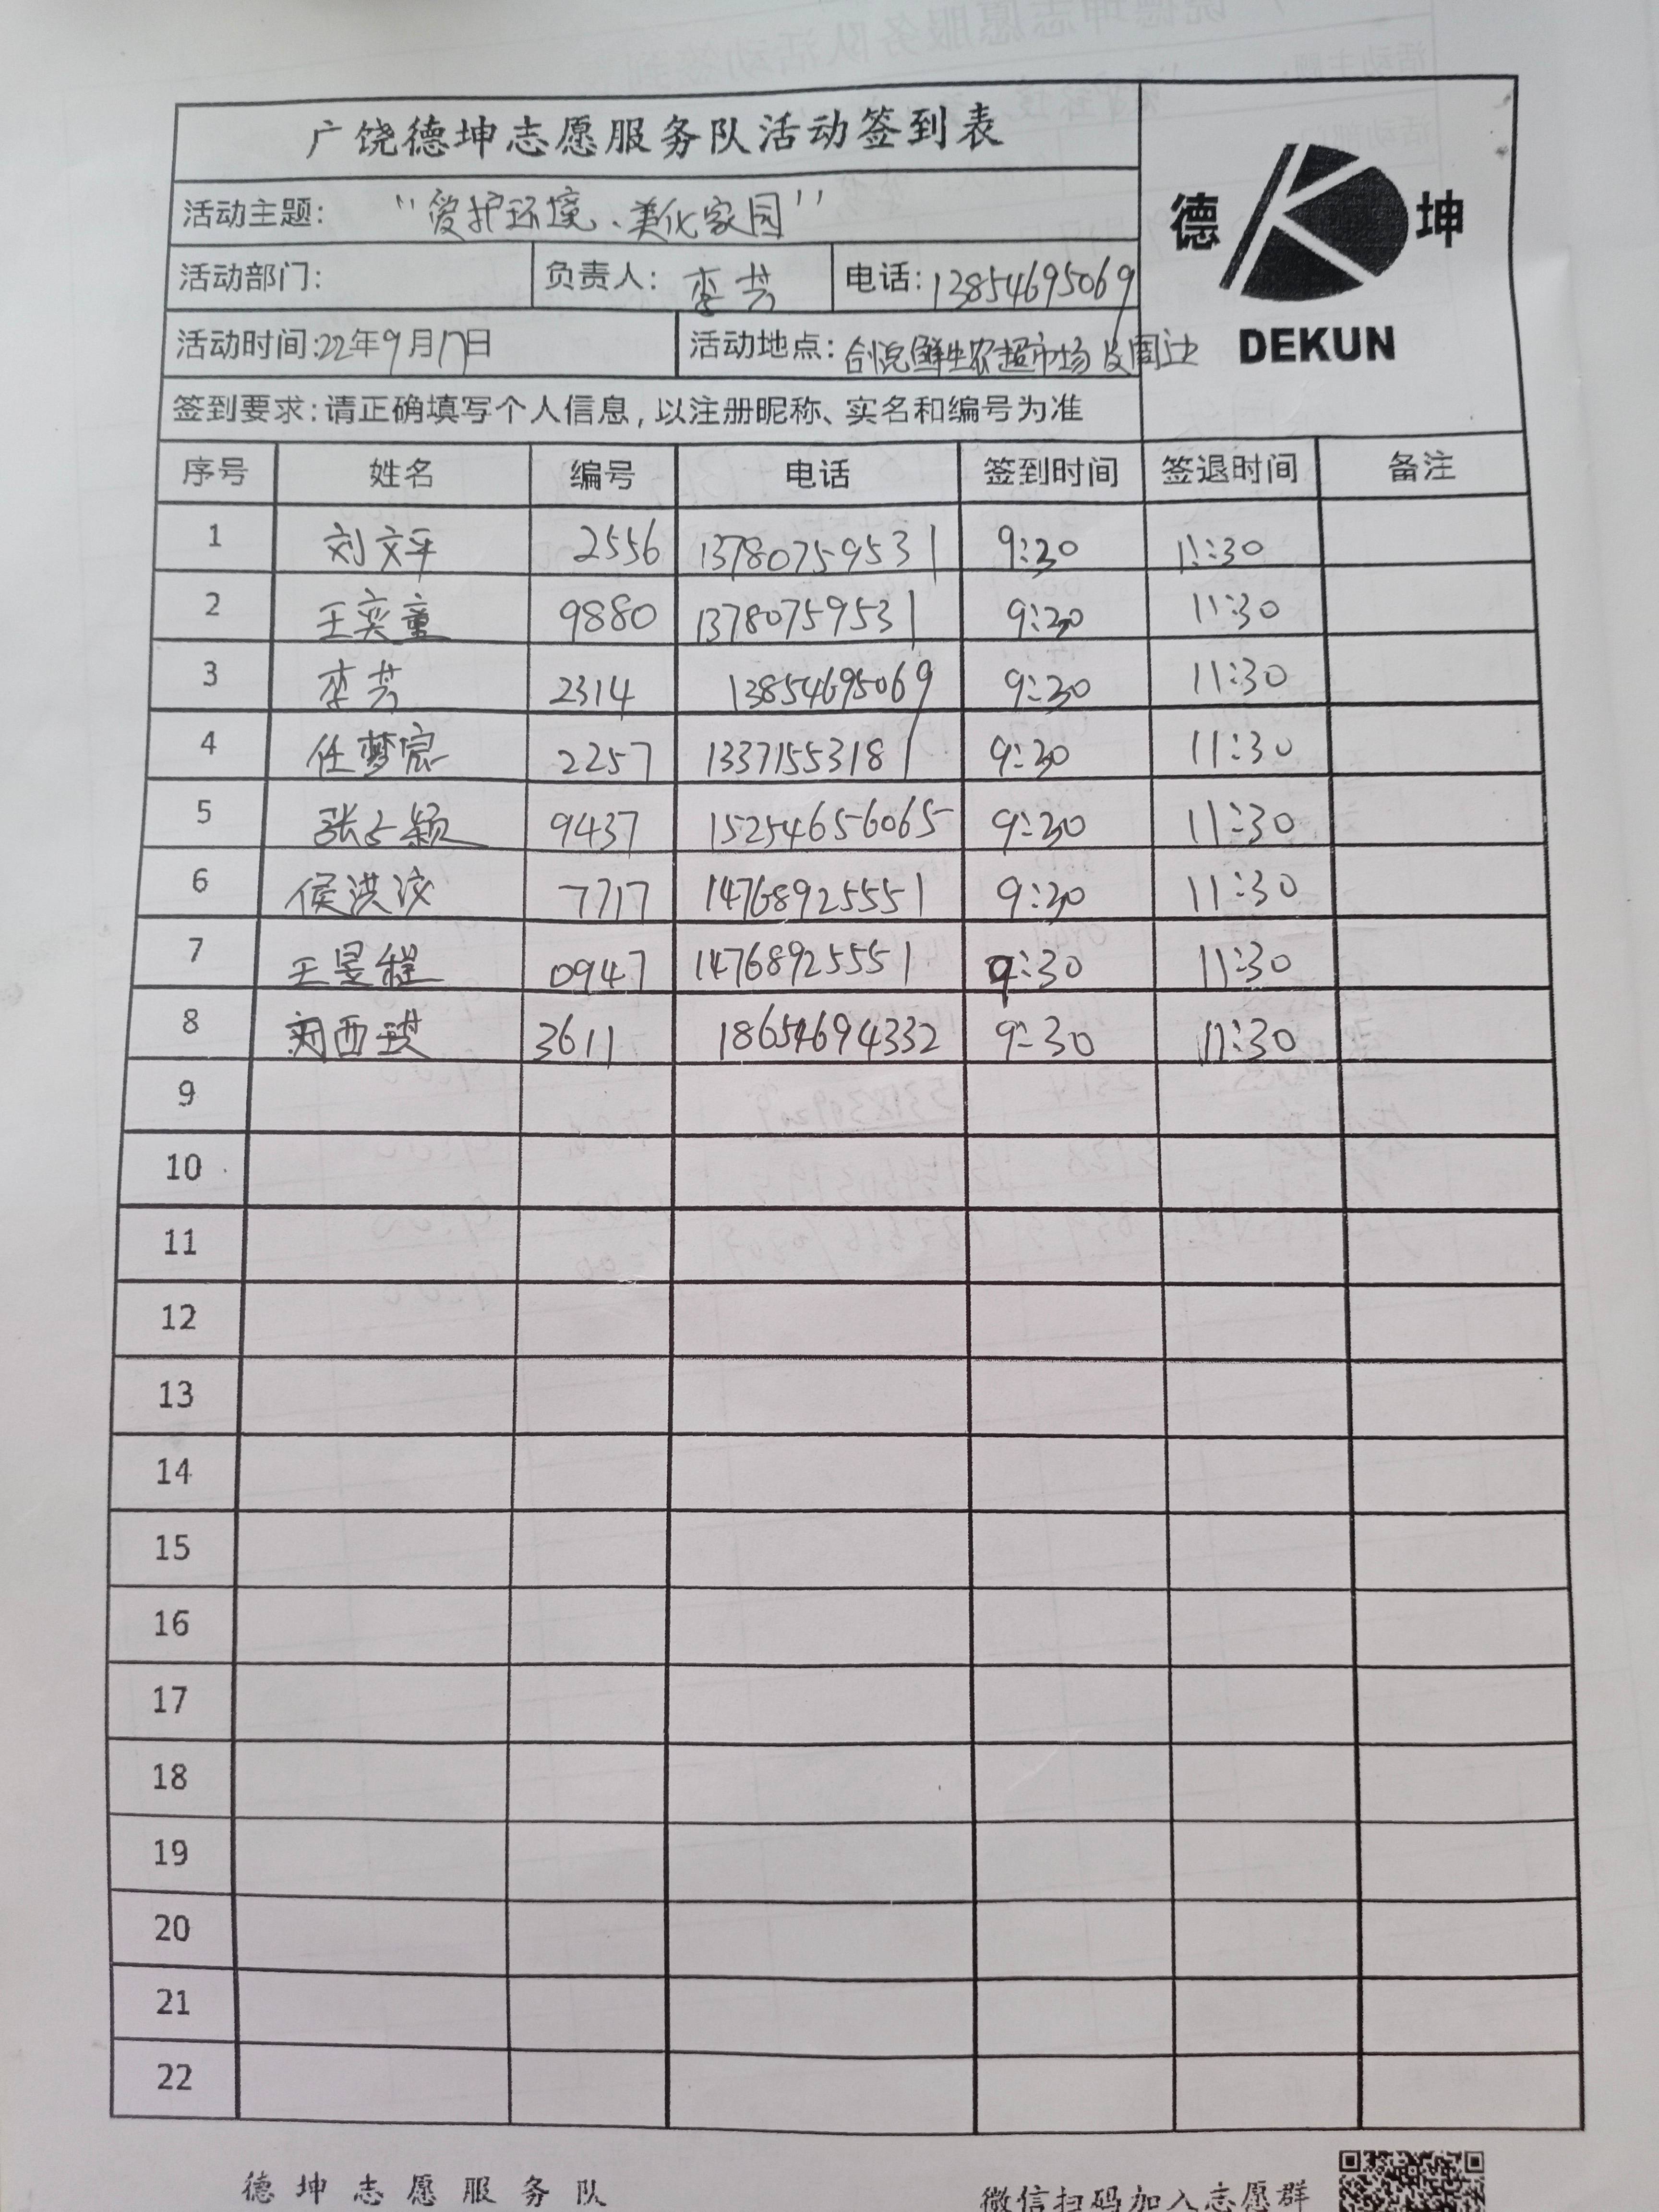 广饶德坤志愿服务队活动签到表
德 坤
DEKUN
活动主题： “爱护环境、美化家园”
活动部门： 负责人：李芳 电话：13854695069
活动时间：22年9月17日 活动地点：合悦鲜生农超市场及周边
签到要求：请正确填写个人信息，以注册昵称、实名和编号为准
序号 姓名 编号 电话 签到时间 签退时间 备注
1 刘文平 2556 13780759531 9:30 11:30
2 王奕童 9880 13780759531 9:30 11:30
3 李芳 2314 13854695069 9:30 11:30
4 任梦宸 2257 13371553181 9:30 11:30
5 张占颖 9437 15254656065 9:30 11:30
6 侯洪波 7717 14768925551 9:30 11:30
7 王昱程 0947 14768925551 9:30 11:30
8 西 3611 18654694332 9:30 11:30
9
10
11
12
13
14
15
16
17
18
19
20
21
22
德坤志愿服务队 微信扫码加入志愿群